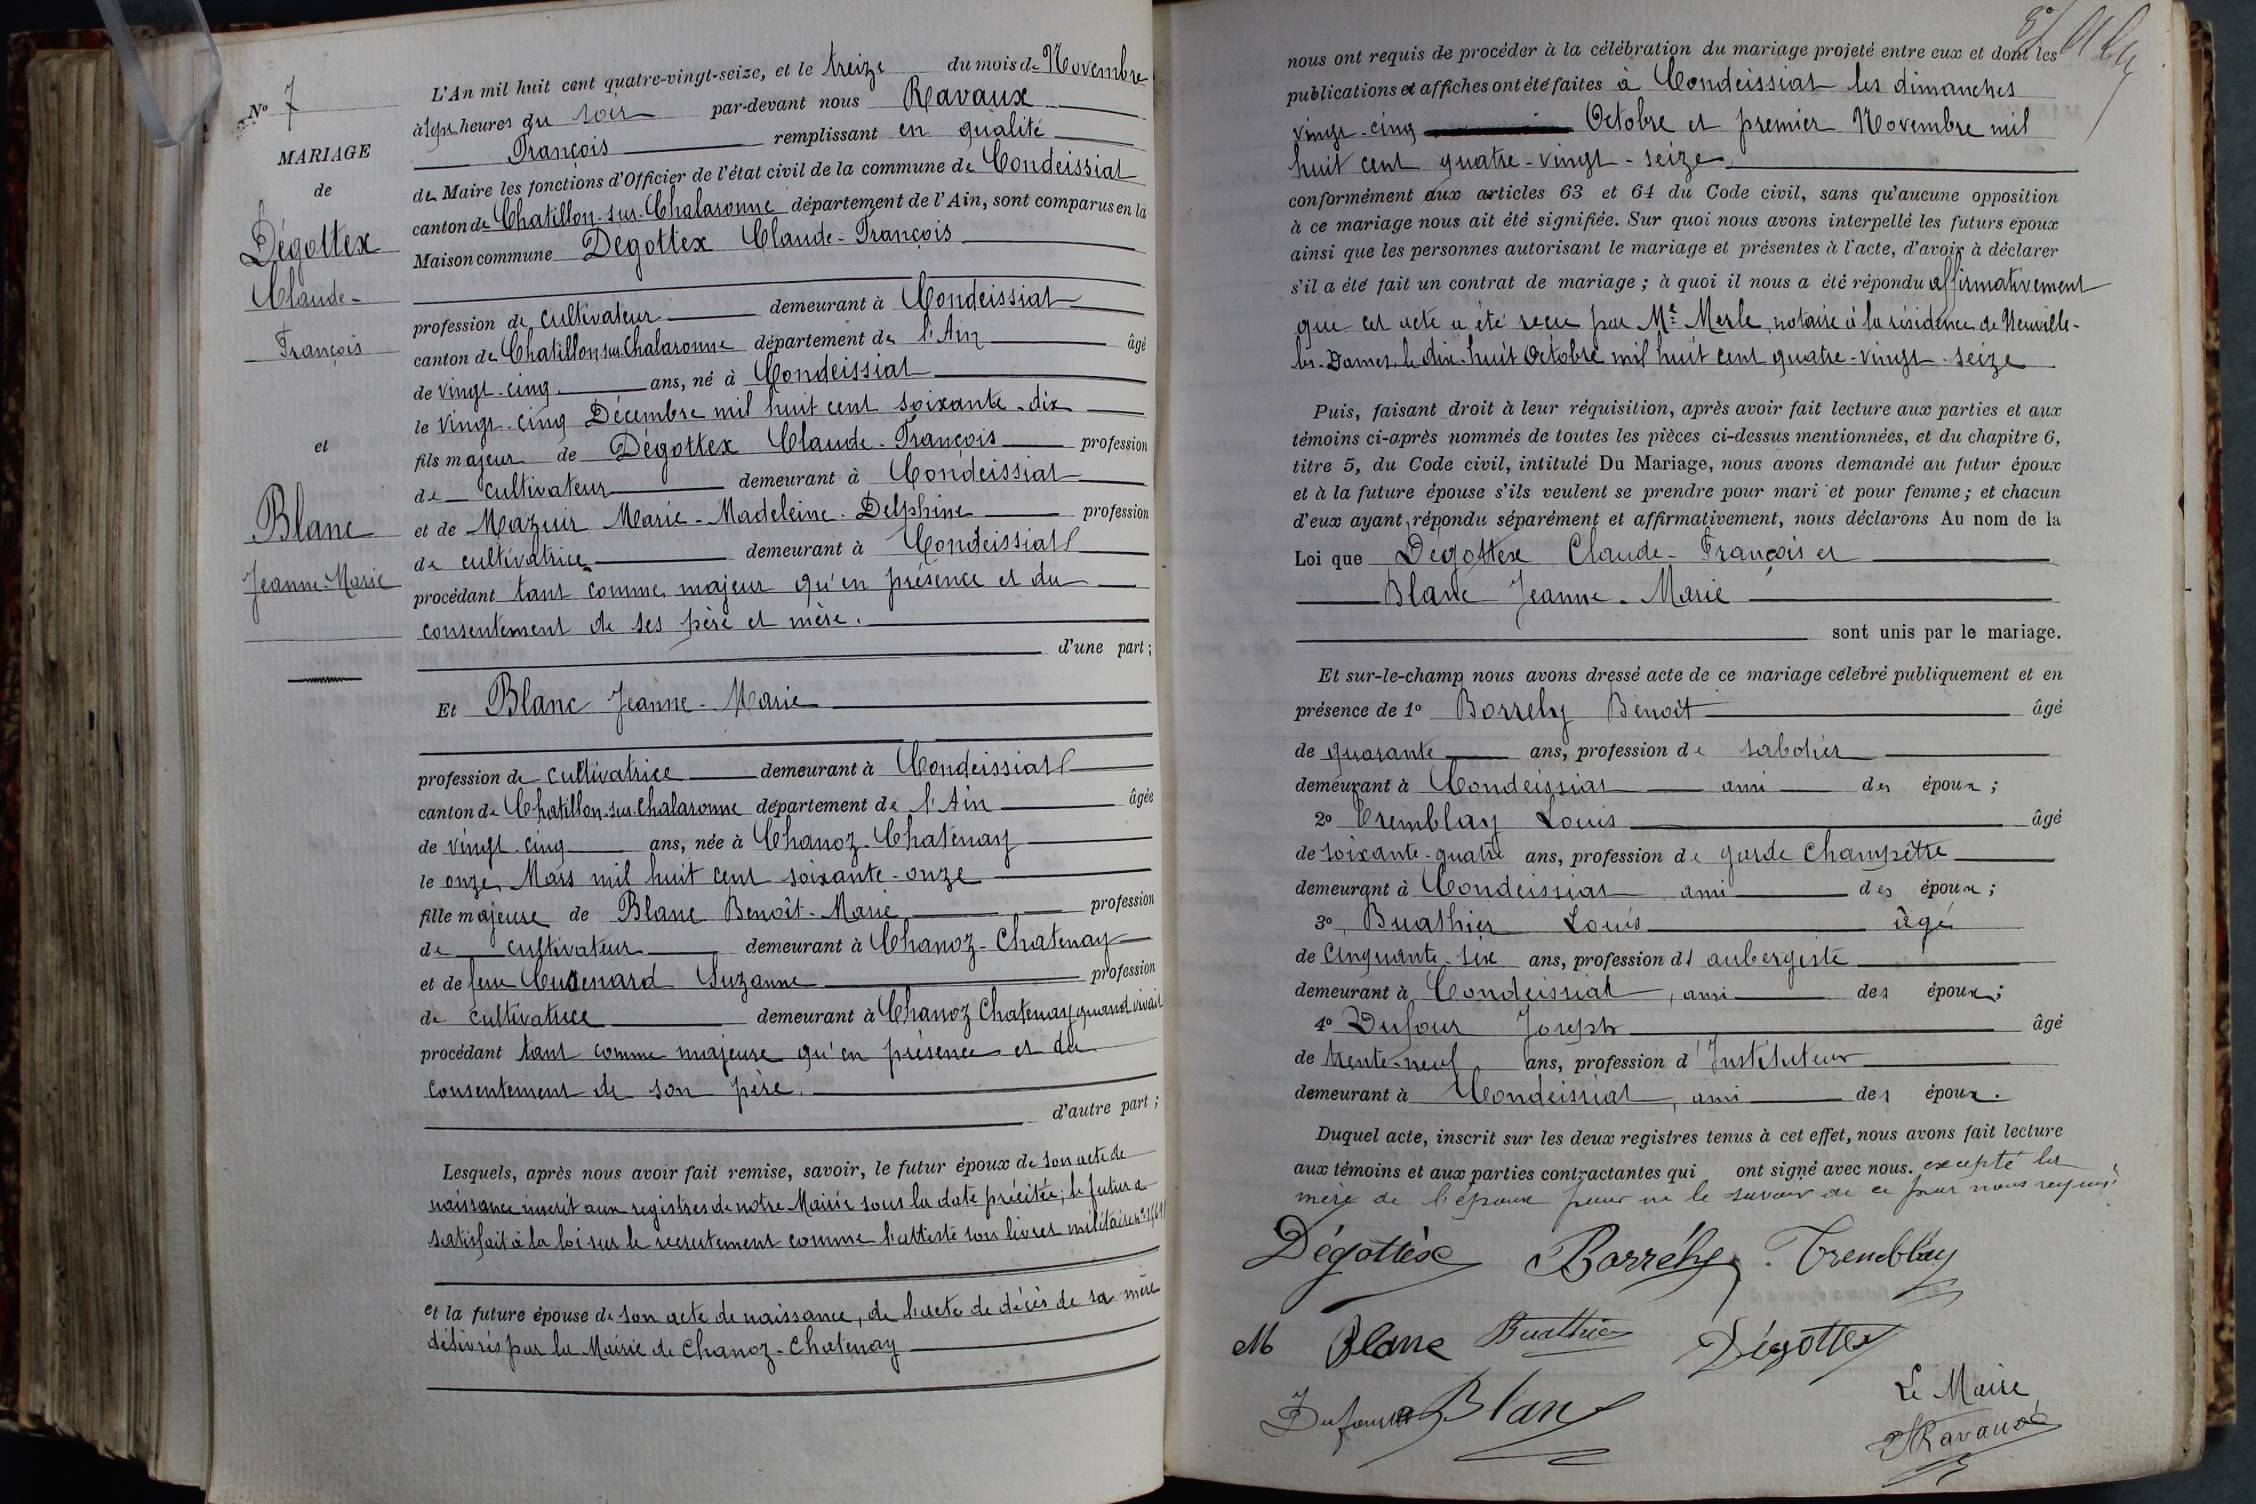 N° 7
MARIAGE
de
Dégottex
Claude-
François
et
Blanc
Jeanne-Marie
L'An mil huit cent quatre-vingt-seize, et le treize du mois de Novembre
à sept heures du soir par-devant nous Ravaux
François remplissant en qualité
de Maire les fonctions d'Officier de l'état civil de la commune de Condeissiat
canton de Chatillon-sur-Chalaronne département de l'Ain, sont comparus en la
Maison commune Dégottex Claude-François
profession de cultivateur demeurant à Condeissiat
canton de Chatillon sur Chalaronne département de l'Ain âgé
de vingt-cinq ans, né à Condeissiat
le vingt-cinq Décembre mil huit cent soixante-dix
fils majeur de Dégottex Claude-François profession
de cultivateur demeurant à Condeissiat
et de Mazuir Marie-Madeleine-Delphine profession
de cultivatrice demeurant à Condeissiat
procédant tant comme majeur qu'en présence et du
consentement de ses père et mère.
d'une part;
Et Blanc Jeanne-Marie
profession de cultivatrice demeurant à Condeissiat
canton de Chatillon-sur-Chalaronne département de l'Ain âgée
de vingt-cinq ans, née à Chanoz-Chatenay
le onze Mars mil huit cent soixante-onze
fille majeure de Blanc Benoît-Marie profession
de cultivateur demeurant à Chanoz-Chatenay
et de feue Suzanne profession
de cultivatrice demeurant à Chanoz Chatenay quand vivait
procédant tant comme majeure qu'en présence et du
consentement de son père.
d'autre part;
Lesquels, après nous avoir fait remise, savoir, le futur époux de son acte de
naissance inscrit aux registres de notre Mairie sous la date précitée; le futur a
satisfait à la loi sur le recrutement comme l'atteste son livret militaire n°
et la future épouse de son acte de naissance, de l'acte de décès de sa mère
délivrés par la Mairie de Chanoz-Chatenay
nous ont requis de procéder à la célébration du mariage projeté entre eux et dont les
publications et affiches ont été faites à Condeissiat les dimanches
vingt-cinq Octobre et premier Novembre mil
huit cent quatre-vingt-seize
conformément aux articles 63 et 64 du Code civil, sans qu'aucune opposition
à ce mariage nous ait été signifiée. Sur quoi nous avons interpellé les futurs époux
ainsi que les personnes autorisant le mariage et présentes à l'acte, d'avoir à déclarer
s'il a été fait un contrat de mariage; à quoi il nous a été répondu affirmativement
que cet acte a été recu par Me Merle, notaire à la résidence de Neuville-
les-Dames, le dix-huit Octobre mil huit cent quatre-vingt-seize
Puis, faisant droit à leur réquisition, après avoir fait lecture aux parties et aux
témoins ci-après nommés de toutes les pièces ci-dessus mentionnées, et du chapitre 6,
titre 5, du Code civil, intitulé Du Mariage, nous avons demandé au futur époux
et à la future épouse s'ils veulent se prendre pour mari et pour femme; et chacun
d'eux ayant répondu séparément et affirmativement, nous déclarons Au nom de la
Loi que Dégottex Claude-François et
Blanc Jeanne-Marie
sont unis par le mariage.
Et sur-le-champ nous avons dressé acte de ce mariage célébré publiquement et en
présence de 1° Borrély Benoît âgé
de quarante ans, profession de sabotier
demeurant à Condeissiat ami des époux;
2° Tremblay Louis âgé
de soixante-quatre ans, profession de garde champêtre
demeurant à Condeissiat ami des époux;
3° Buathier Louis âgé
de cinquante-six ans, profession d' aubergiste
demeurant à Condeissiat, ami des époux;
4° Dufour Joseph âgé
de trente-neuf ans, profession d'Instituteur
demeurant à Condeissiat, ami des époux.
Duquel acte, inscrit sur les deux registres tenus à cet effet, nous avons fait lecture
aux témoins et aux parties contractantes qui ont signé avec nous. excepté la
mère de l'époux pour ne le savoir de ce par nous requis
Dégottex Borrély Tremblay
M Blanc Buathier Dégottex
Dufour Blanc
Le Maire
Ravaux